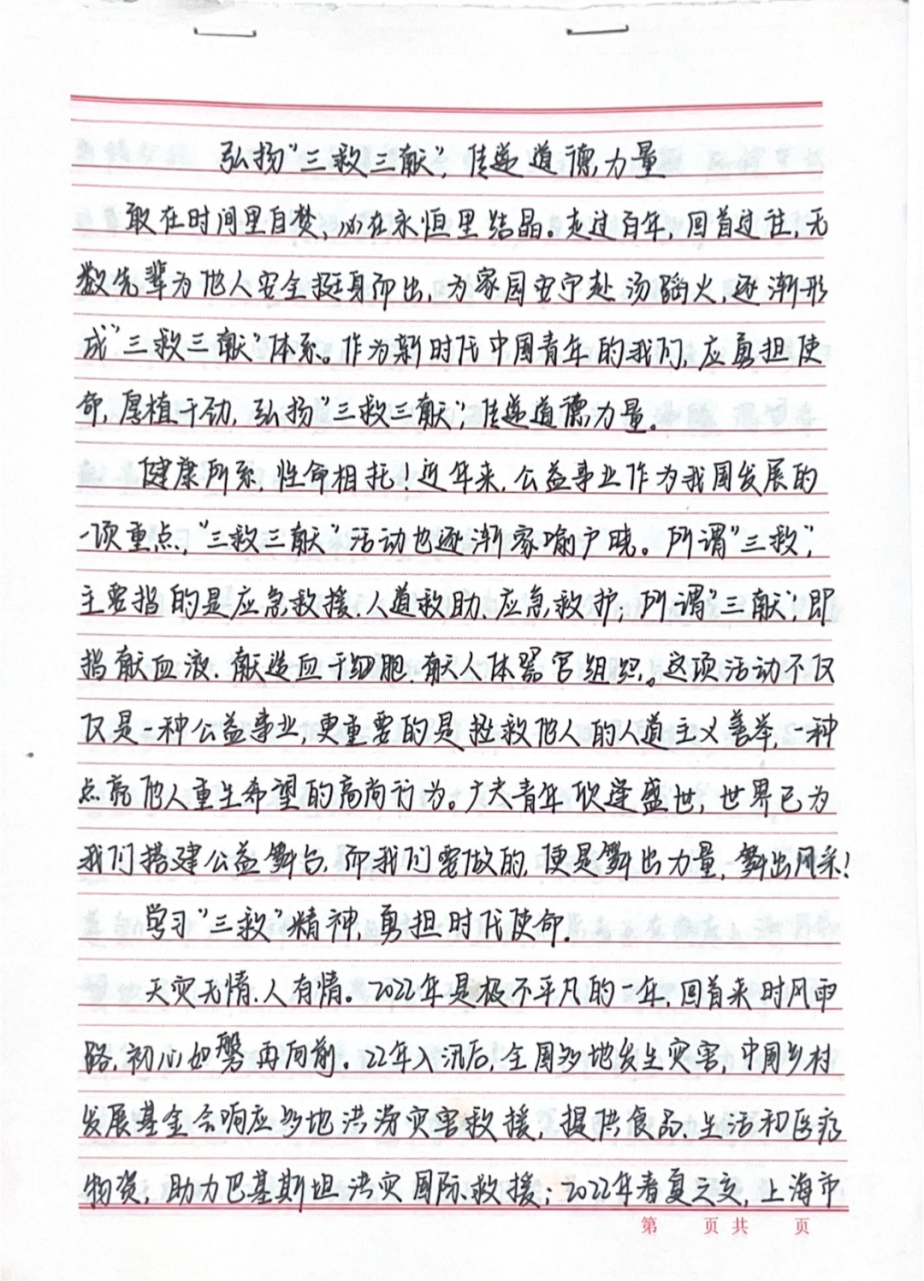 弘扬“三救三献”，传递道德力量
敢在时间里自焚，必在永恒里结晶。走过百年，回首过往，无
数先辈为他人安全挺身而出，为家国安宁赴汤蹈火，逐渐形
成“三救三献”体系。作为新时代中国青年的我们，应勇担使
命，厚植干劲，弘扬“三救三献”，传递道德力量。
健康所系，性命相托！近年来，公益事业作为我国发展的
一项重点，“三救三献”活动也逐渐家喻户晓。所谓“三救”，
主要指的是应急救援、人道救助、应急救护；所谓“三献”，即
指献血液、献造血干细胞、献人体器官组织。这项活动不仅
仅是一种公益事业，更重要的是拯救他人的人道主义善举，一种
点亮他人重生希望的高尚行为。广大青年欣逢盛世，世界已为
我们搭建公益舞台，而我们要做的，便是舞出力量，舞出风采！
学习“三救”精神，勇担时代使命。
天灾无情，人有情。2022年是极不平凡的一年，回首来时风雨
路，初心如磐再向前。22年入汛后，全国多地发生灾害，中国乡村
发展基金会响应多地洪涝灾害救援，提供食品、生活和医疗
物资；助力巴基斯坦洪灾国际救援；2022年春夏之交，上海市
第 页 共 页